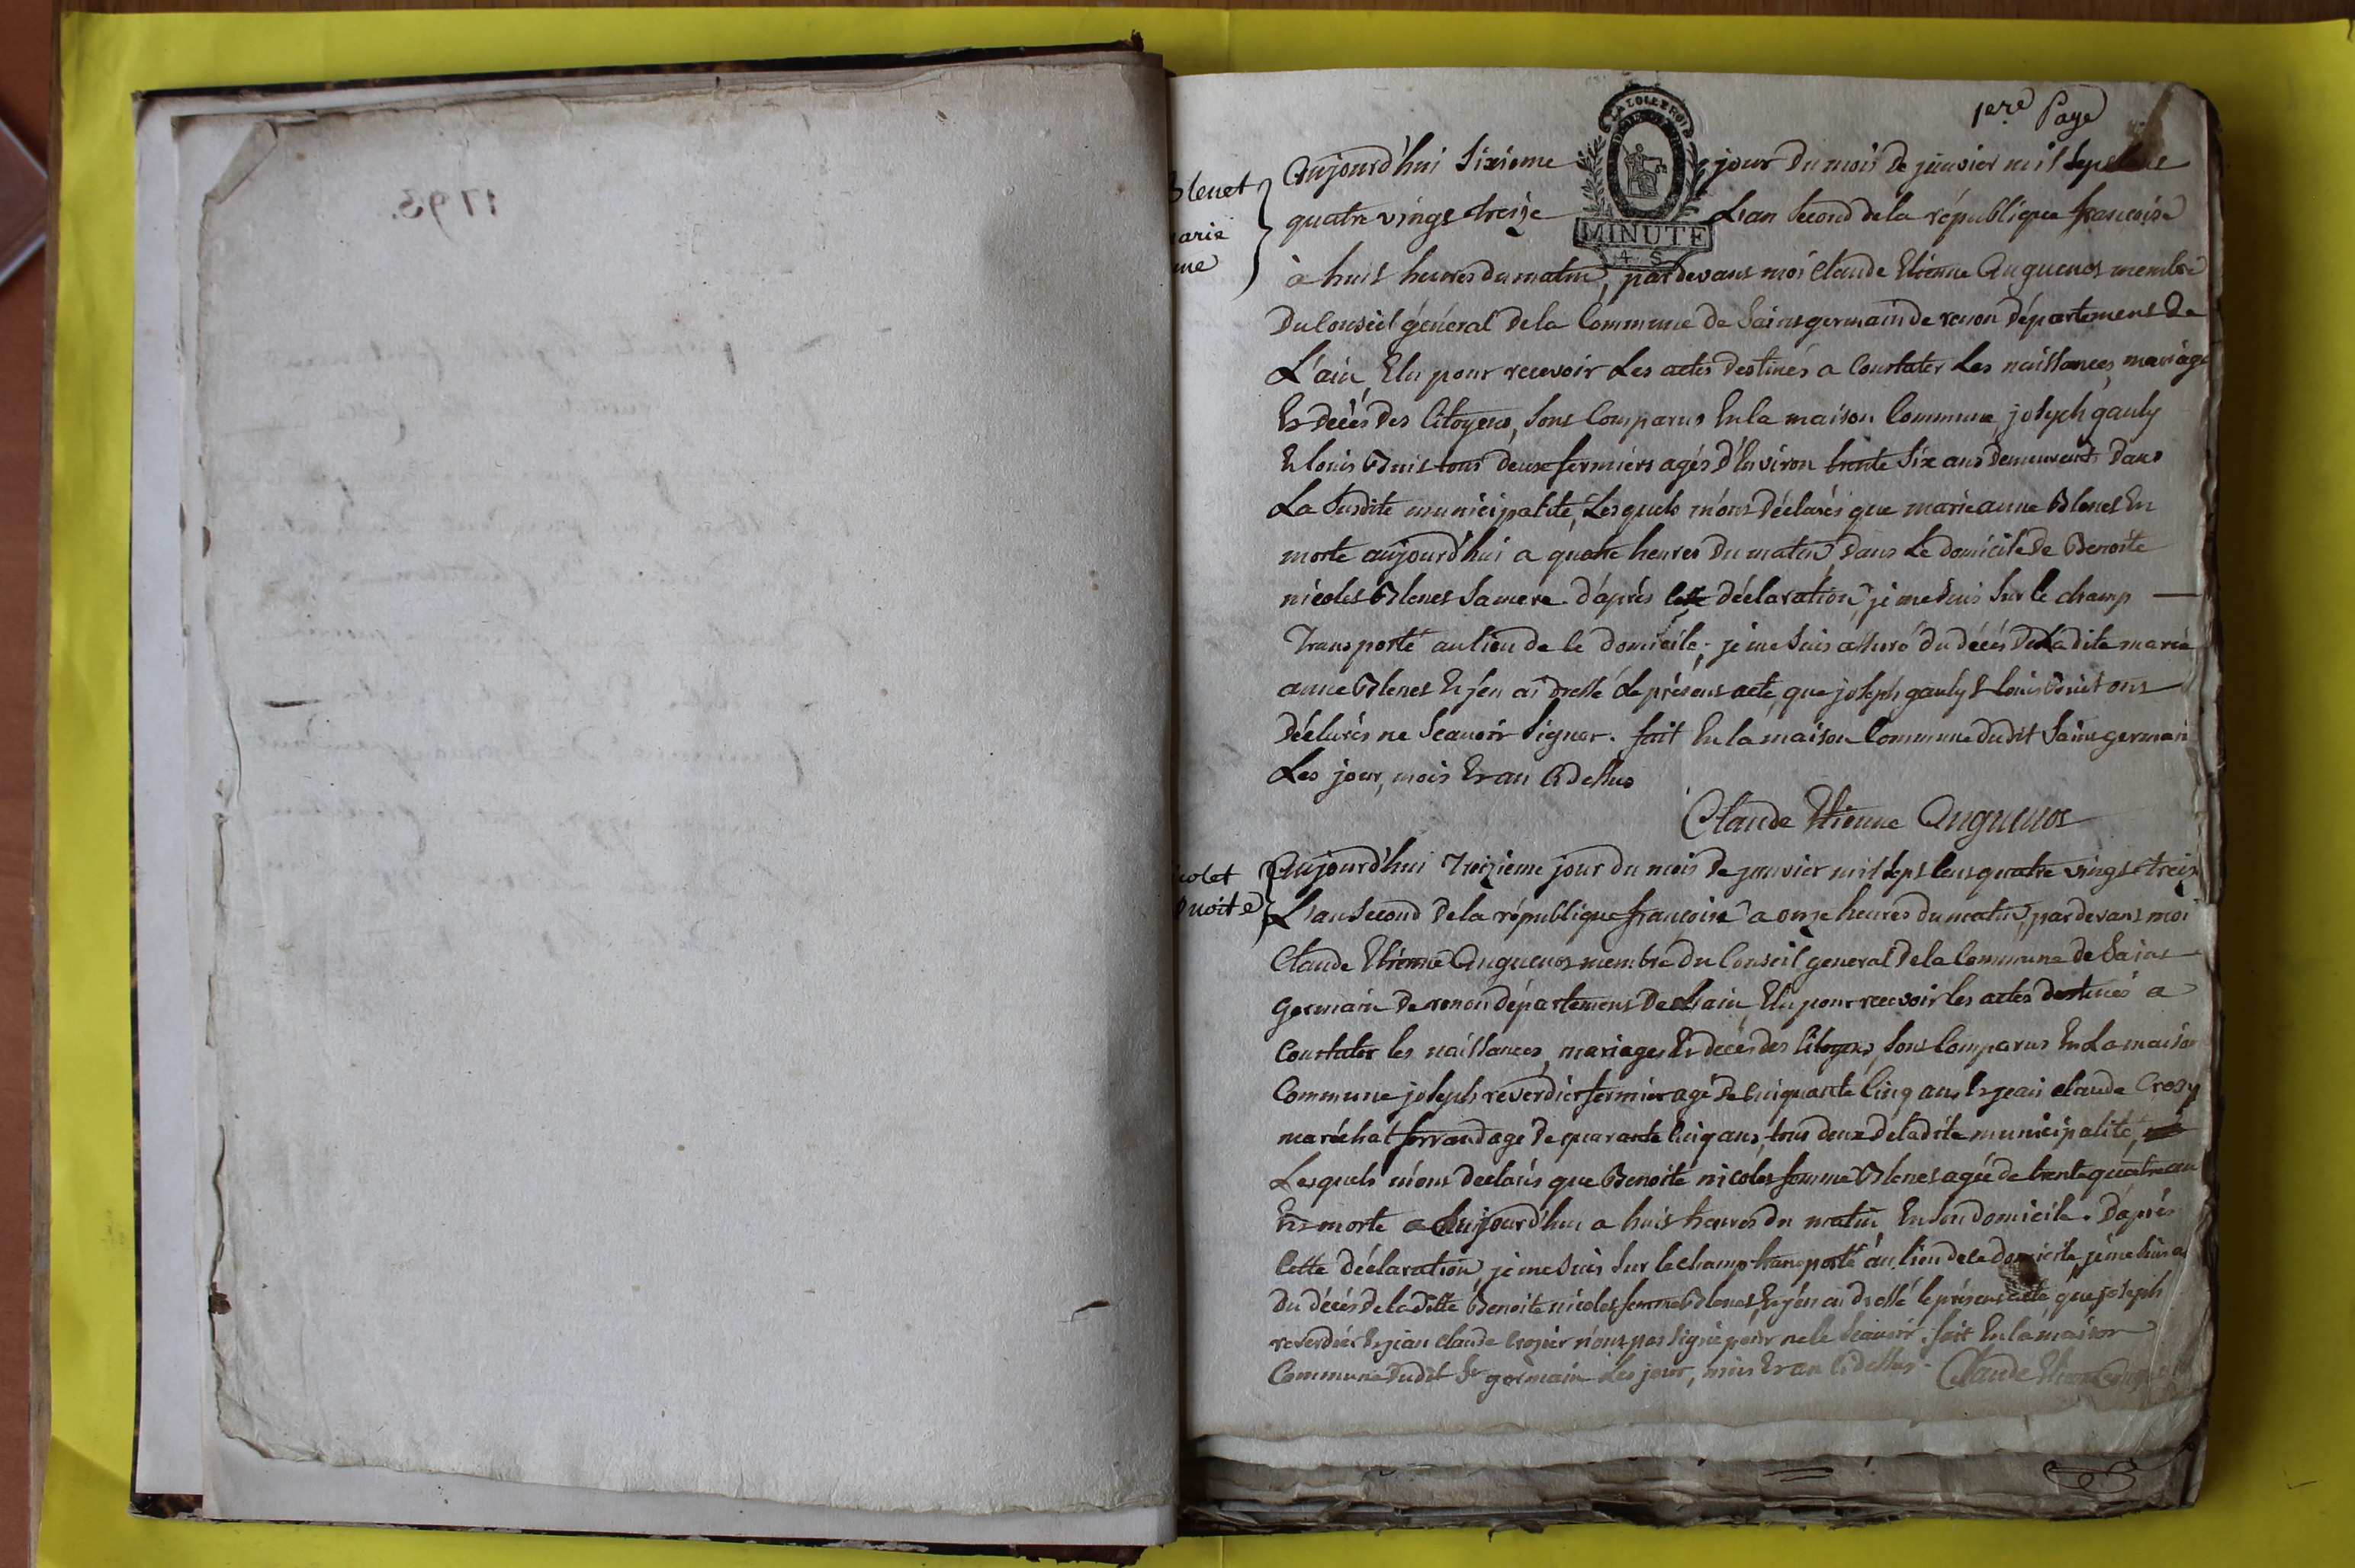 1793.
1ere Page
LA LOI ET LE ROI
MINUTE
4. S
Blenet
arie
nne
Aujourd'hui Sixieme jour du mois de janvier mil Sept Cens
quatre vings treize L'an Second de la république francoise
à huit heures du matin, pardevant moi Claude Etienne Anguenot membre
Du Conseil général de la Commune de Saint germain de renon département de
L'ain, Elu pour recevoir Les actes destinés a Constater Les naissances, mariages
Et Décès Des Citoyens, sont Comparus En la maison Commune, joseph gauly
Et louis Buit tous deux fermiers agés d'Environ trente Six ans demeurents Dans
La Susdite municipalité, Lesquels m'ont Déclarés que marie anne Blenet En
morte aujourd'hui a quatre heures Du matin, dans Le domicile De Benoite
nicolet Blenet Sa mere. d'après cette déclaration, je me suis Sur le champ
Transporté au lieu de ce domicile, je me Suis assuré du décès De La dite marie
anne Blenet Et j'en ai dressé Le présent acte, que joseph gauly & louis Buit ont
Déclarés ne Scavoir Signer. fait En la maison Commune dudit Saint germain
Les jour, mois Et an Cidessus
Claude Etienne Anguenot
icolet
enoite
Aujourd'hui Treizieme jour du mois De janvier mil Sept Cens quatre vings treize
L'an Second De la république francoise a onze heures du matin, pardevant moi
Claude Etienne Anguenot membre du Conseil general De la Commune de Saint
Germain De renon département De L'ain, Elu pour recevoir les actes destinés a
Constater les naissances, mariages Et décès des Citoyens, Sont Comparus En La maison
Commune joseph reverdier fermier agé De Cinquante Cinq ans, Et jean claude Crozy
maréchal ferrand agé De quarante Cinq ans, tous deux de ladite municipalité,
Lesquels m'ont declarés que Benoite nicolet femme Blenet agée de trente quatre an
Est morte aujourd'hui a huit heures du matin En son domicile. D'après
Cette déclaration, je me suis Sur le champ transporté au lieu de ce domicile, je me suis as
Du décès de la ditte Benoite nicolet femme Blenet, Et j'en ai dressé le présent acte, que joseph
reverdier Et jean claude crozier n'ont pas Signé pour ne le Scavoir. fait En la maison
Commune Dudit St germain Les jour, mois Et an Cidessus. Claude Etienne Anguenot